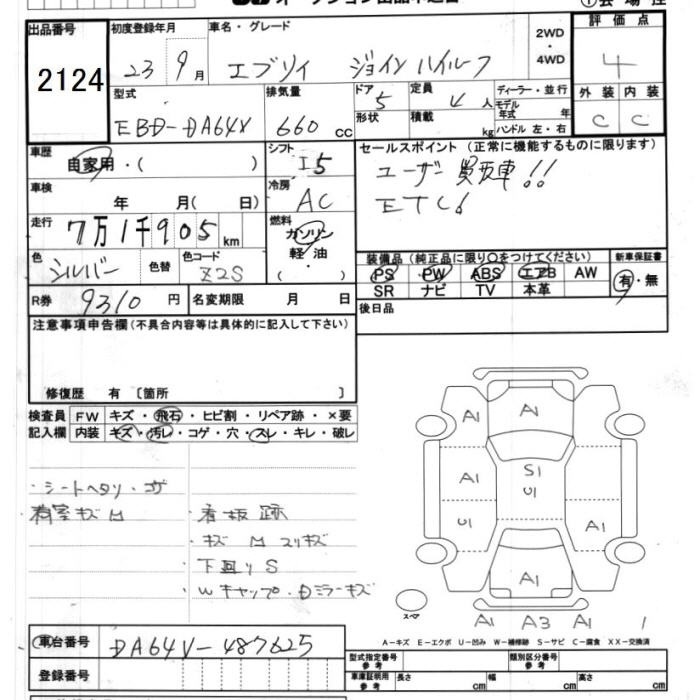 出品番号
2124
初度登録年月
23 9月
車名・グレード
エブリイ ジョイン ハイルーフ
2WD
・
4WD
評価点
4
外装 内装
C C
型式
EBD-DA64V
排気量
660 CC
ドア
5
形状
定員
4 人
積載
kg
ディーラー・並行
モデル年式 年
ハンドル 左・右
車歴
自家用・( )
シフト
I5
車検
年 月( 日)
冷房
AC
走行
7万1千905km
燃料
ガソリン
軽・油
( )
色
シルバー
色替
色コード
Z2S
R券
9310円
名変期限 月 日
セールスポイント(正常に機能するものに限ります)
ユーザー買取車!!
ETC
装備品(純正品に限り〇をつけてください)
PS PW ABS エアB AW
SR ナビ TV 本革
新車保証書
有・無
後日品
注意事項申告欄(不具合内容等は具体的に記入して下さい)
修復歴 有〔箇所 〕
検査員
記入欄
FW キズ・飛石・ヒビ割・リペア跡・×要
内装 キズ・汚レ・コゲ・穴・スレ・キレ・破レ
・シートヘタリ・コゲ
荷室キズM
・看板跡
・キズ M スリキズ
・下回りS
・Wキャップ・Dミラーキズ
A1
A1
A1
A1
S1
U1
U1
A1
A1
スペア
A1 A3 A1 1
A-キズ E-エクボ U-凹み W-補修跡 S-サビ C-腐食 XX-交換済
車台番号
DA64V-487625
登録番号
型式指定番号
参考
類別区分番号
参考
車庫証明用
参考
長さ cm
幅 cm
高さ cm